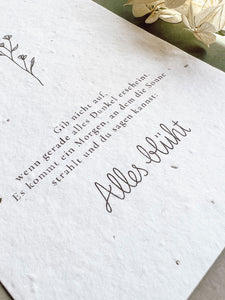 Gib nicht auf,
wenn gerade alles Dunkel erscheint.
Es kommt ein Morgen, an dem die Sonne
strahlt und du sagen kannst:
Alles blüht